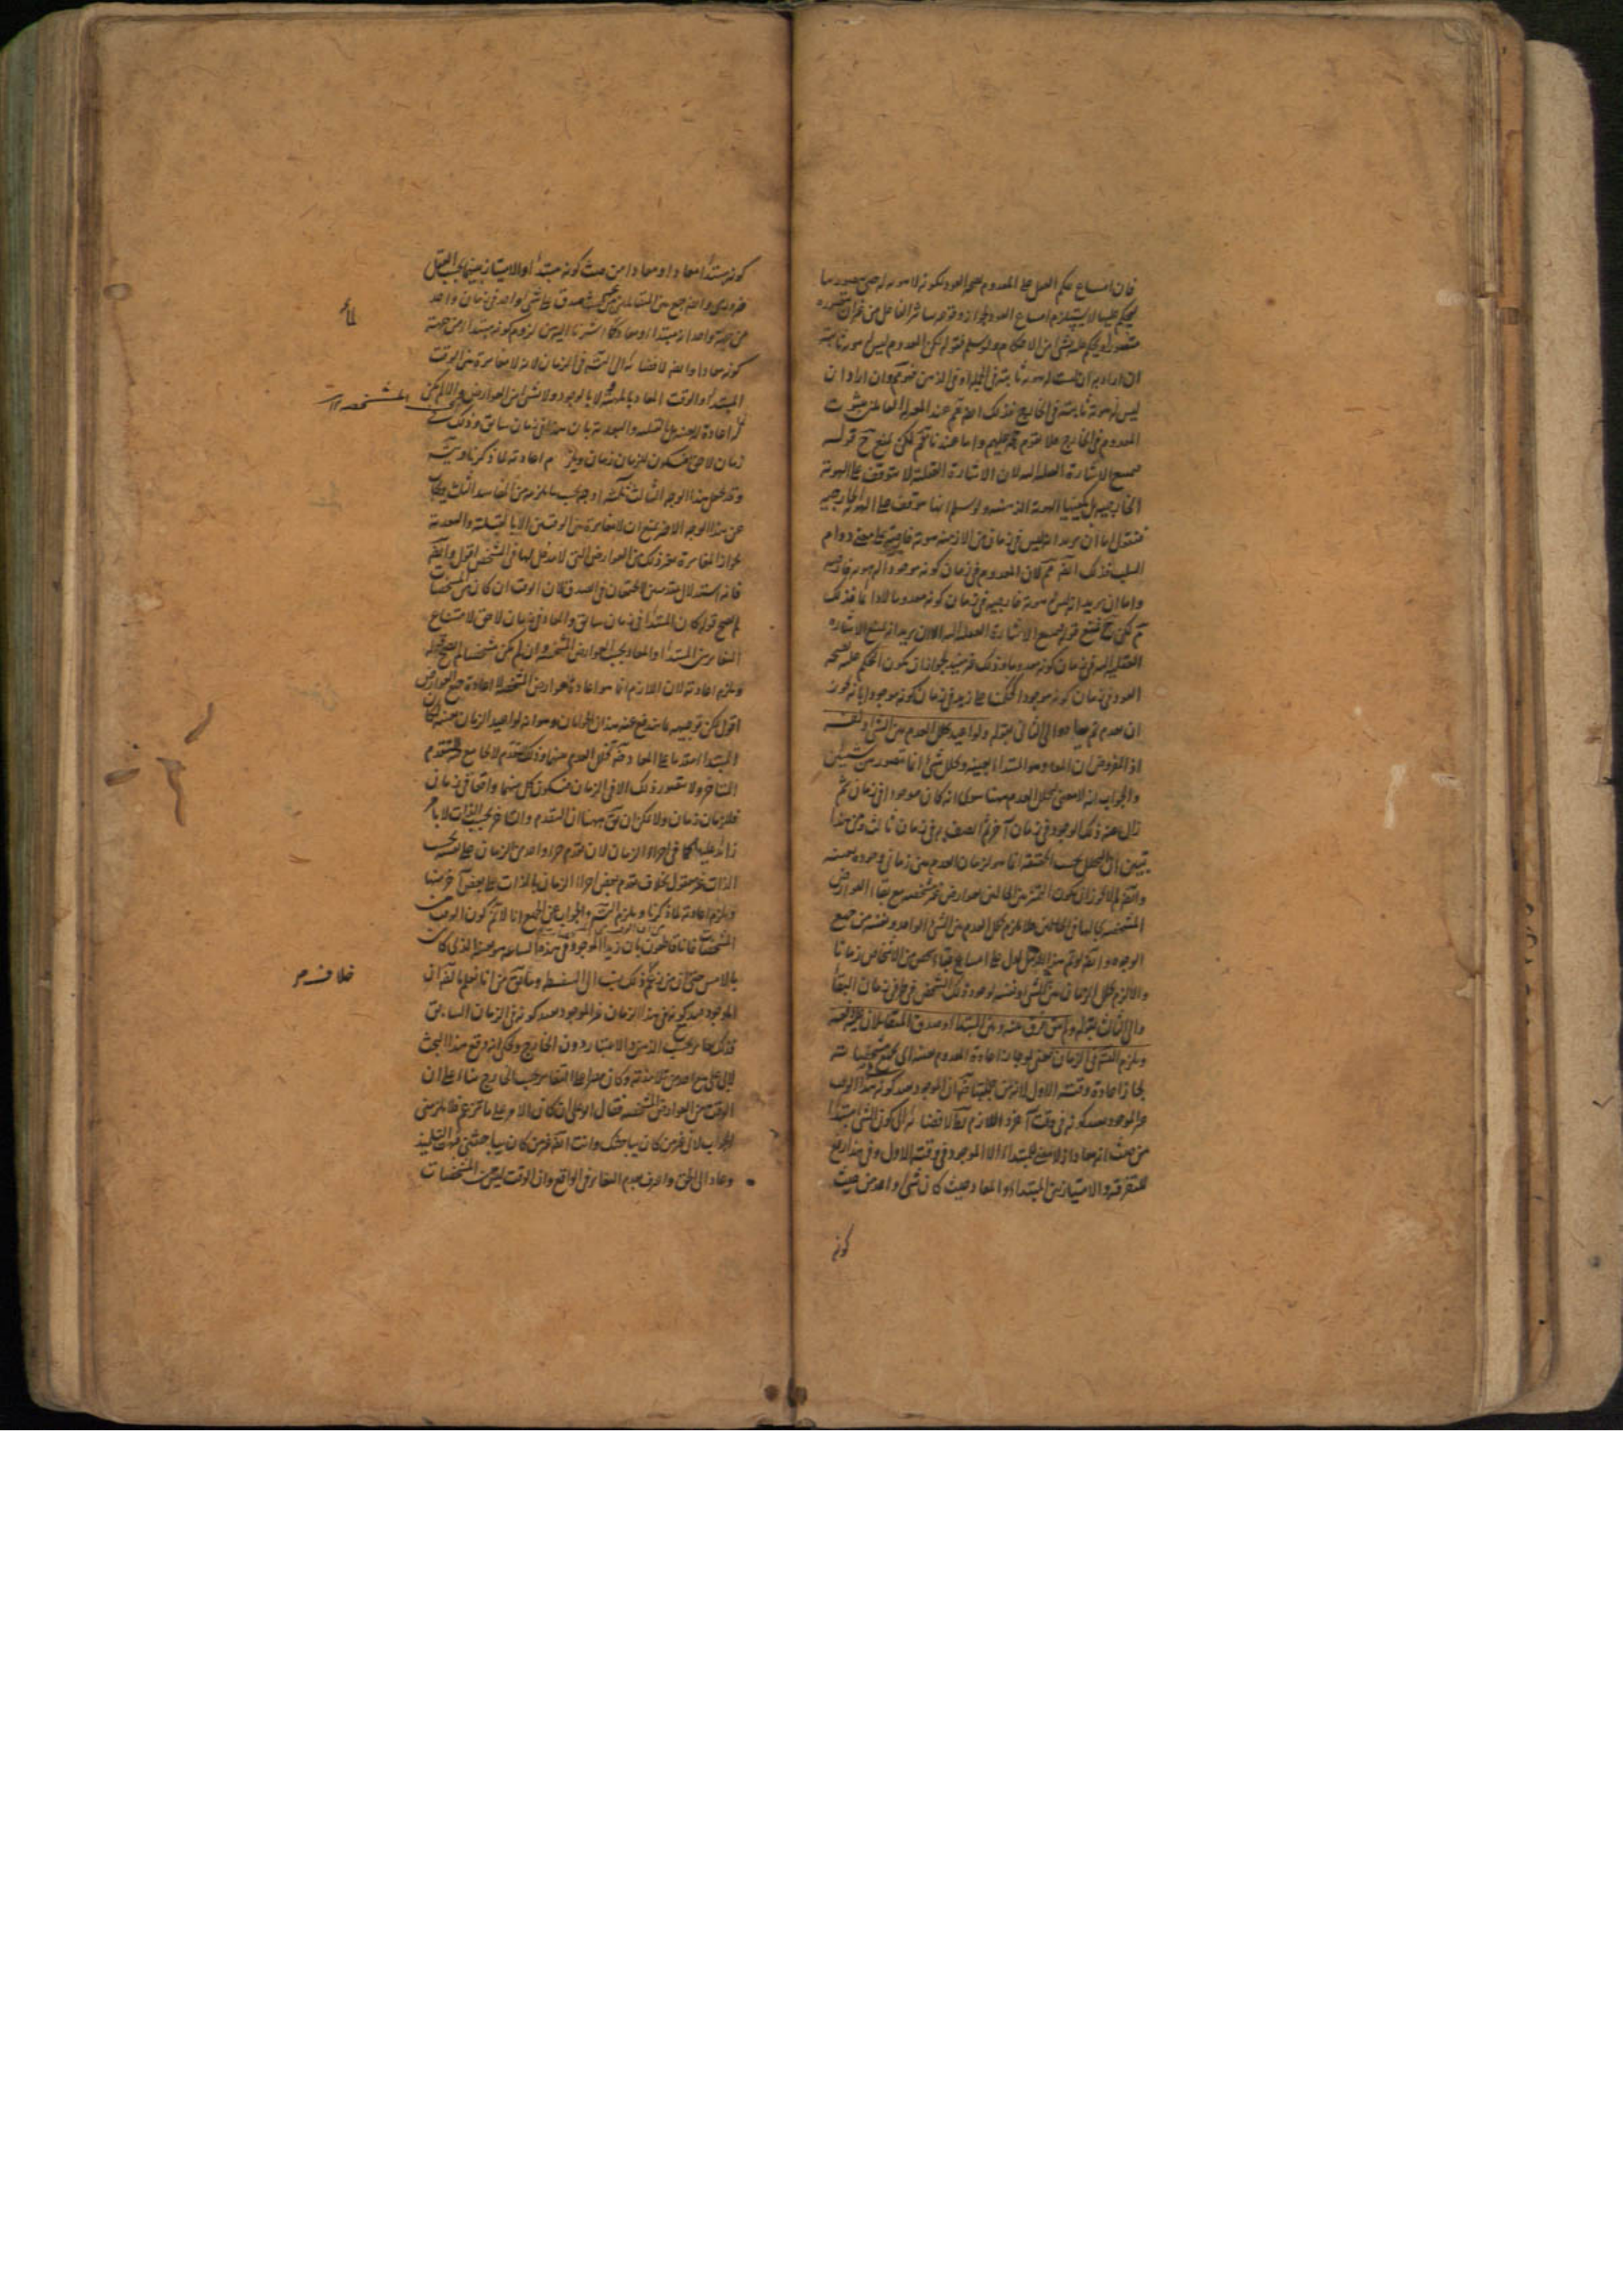 فان امتناع حكم العقل على المعدوم بصحة العود لكونه لا هوية له حتى يتصورها
ليحكم عليها لا يستلزم امتناع العود لجواز وقوعه بتاثير الفاعل من غير ان يتصوره
متصور او يحكم عليه بشئ من الاحكام ولو سلم فقوله لكن المعدوم ليس له هوية ثابتة
ان اراد به ان ليست له هوية ثابتة في الجملة ولو في الذهن فهو مم وان اراد ان
ليس له هوية ثابتة في الخارج فذلك انما يتم عند المعتزلة القائلين بثبوت
المعدوم في الخارج فلا تقوم حجة عليهم واما عندنا فمم لكن يمنع ح قوله
فيمتنع الاشارة العقلية اليه لان الاشارة العقلية لا تتوقف على الهوية
الخارجية بل يكفيها الهوية الذهنية ولو سلم انها تتوقف على الهوية الخارجية
فنقول اما ان يريد انه ليس في زمان من الازمنة هوية خارجية على معنى دوام
السلب فذلك ايضا مم لان المعدوم في زمان كونه موجودا له هوية خارجية
واما ان يريد انه ليس له هوية خارجية في زمان كونه معدوما لا دائما فذلك
مم لكن ح يمنع قوله فيمتنع الاشارة العقلية اليه الا ان يريد انه يمتنع الاشارة
العقلية اليه في زمان كونه معدوما وذلك غير مفيد لجواز ان يكون الحكم عليه بصحة
العود في زمان كونه موجودا كالحكم على زيد في زمان كونه موجودا بانه يجوز
ان يعدم ثم يعاد والى الثاني بقوله ولو اعيد تخلل العدم بين الشئ ونفسه
اذ المفروض ان المعاد هو المبتدأ بعينه وتخلل شئ انما يتصور بين شيئين
والجواب انه لا معنى لتخلل العدم ههنا سوى انه كان موجودا في زمان ثم
زال عنه ذلك الوجود في زمان آخر ثم اتصف به في زمان ثالث ومن هذا
يتبين ان التخلل بحسب الحقيقة انما هو لزمان العدم بين زماني وجوده بعينه
المشخصة بحالها في الحالين فلا يلزم تخلل العدم بين الشئ الواحد ونفسه من جميع
الوجوه وايضا لو تم هذا الدليل لدل على امتناع بقاء شخص من الاشخاص زمانا
والا لزم تخلل الزمان بين الشئ ونفسه لوجود ذلك الشخص في طرفي زمان البقاء
والى الثالث بقوله ولم يبق فرق بينه وبين المبتدأ وصدق المتقابلان عليه دفعة
ويلزم التس في الزمان يعني لو جاز اعادة المعدوم بعينه اى بجميع مشخصاته
لجاز اعادة وقته الاول لانه من جملتها ضرورة ان الموجود بقيد كونه في هذا الوقت
غير الموجود بقيد كونه في وقت آخر واللازم بط لافضائه الى كون الشئ مبتدأ
من حيث انه معاد اذ لا معنى للمبتدأ الا الموجود في وقته الاول وفي هذا رفع
للتفرقة والامتياز بين المبتدأ والمعاد حيث كان شئ واحد من حيث
كونه
كونه مبتدأ معادا ومعادا من حيث كونه مبتدأ والامتياز بينهما بحسب العقل
ضروري وايضا جمع بين المتقابلين حيث صدق على شئ واحد في زمان واحد
من جهة واحدة انه مبتدأ ومعاد كما اشرنا اليه من لزوم كونه مبتدأ من جهة
كونه معادا وايضا لافضائه الى التس في الزمان لانه لا مغايرة بين الوقت
المبتدأ والوقت المعاد بالماهية لا بالوجود ولا بشئ من العوارض والا لم يكن
له اعادة بعينه بل بالقبلية والبعدية بان هذا في زمان سابق وذلك في
زمان لاحق فيكون للزمان زمان ويلزم اعادته لما ذكرنا ويتس
وقد يجعل هذا الوجه الثالث ثلثة اوجه بحسب ما يلزمه من المفاسد الثلث ويجاب
عن هذا الوجه الاخير بمنع ان لا مغايرة بين الوقتين الا بالقبلية والبعدية
لجواز المغايرة بغير ذلك من العوارض التي لا مدخل لها في التشخص اقول وايضا
فانه استدلال بمقدمتين لا يجتمعان في الصدق لان الوقت ان كان من المشخصات
لم يصح قوله كان المبتدأ في زمان سابق والمعاد في زمان لاحق لامتناع
التغاير بين المبتدأ والمعاد بحسب العوارض المشخصة وان لم يكن مشخصا لم يصح قوله
ويلزم اعادته لان اللازم انما هو اعادة العوارض المشخصة لا اعادة جميع العوارض
اقول يمكن توجيهه بما يندفع عنه هذان الجوابان وهو انه لو اعيد الزمان بعينه لكان
المبتدأ متقدما على المعاد ضرورة تخلل العدم بينهما وذلك تقدم لا يجامع فيه المتقدم
المتأخر ولا يتصور ذلك الا في الزمان فيكون كل منهما واقعا في زمان
فللزمان زمان ولا يمكن ان يق ههنا ان التقدم والتأخر بحسب الذات لا بامر
زائد عليها كما في اجزاء الزمان لان تقدم جزء واحد من الزمان على نفسه بحسب
الذات غير معقول بخلاف تقدم بعض اجزاء الزمان بالذات على بعض آخر منها
ويلزم اعادته لما ذكرنا ويلزم التس والجواب عن الجميع انا لا نم كون الوقت من
المشخصات فانا قاطعون بان زيدا الموجود في هذه الساعة هو بعينه الذي كان
بالامس حتى ان من زعم ذلك نسب الى السفسطة وما يق من انا نعلم بالضرورة ان
الموجود بقيد كونه في هذا الزمان غير الموجود بقيد كونه في الزمان السابق
فذلك تغاير بحسب الذهن والاعتبار دون الخارج ويحكى انه وقع هذا البحث
لابي علي مع احد من تلامذته وكان مصرا على التغاير بحسب الخارج بناء على ان
الوقت من العوارض المشخصة فقال ابو علي ان كان الامر على ما تزعم فلا يلزمني
الجواب لاني غير من كان يباحثك وانت ايضا غير من كان يباحثني فبهت التلميذ
وعاد الى الحق واعترف بعدم التغاير في الواقع وان الوقت ليس من المشخصات